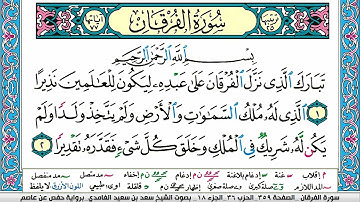 سُورَةُ الْفُرْقَانِ
بِسْمِ اللَّهِ الرَّحْمَٰنِ الرَّحِيمِ
تَبَارَكَ الَّذِي نَزَّلَ الْفُرْقَانَ عَلَىٰ عَبْدِهِ لِيَكُونَ لِلْعَالَمِينَ نَذِيرًا
١ الَّذِي لَهُ مُلْكُ السَّمَاوَاتِ وَالْأَرْضِ وَلَمْ يَتَّخِذْ وَلَدًا وَلَمْ
يَكُن لَّهُ شَرِيكٌ فِي الْمُلْكِ وَخَلَقَ كُلَّ شَيْءٍ فَقَدَّرَهُ تَقْدِيرًا ٢
سورة الفرقان الصفحة ٣٥٩ الحزب ٣٦ الجزء ١٨ بصوت الشيخ سعد بن سعيد الغامدي برواية حفص عن عاصم